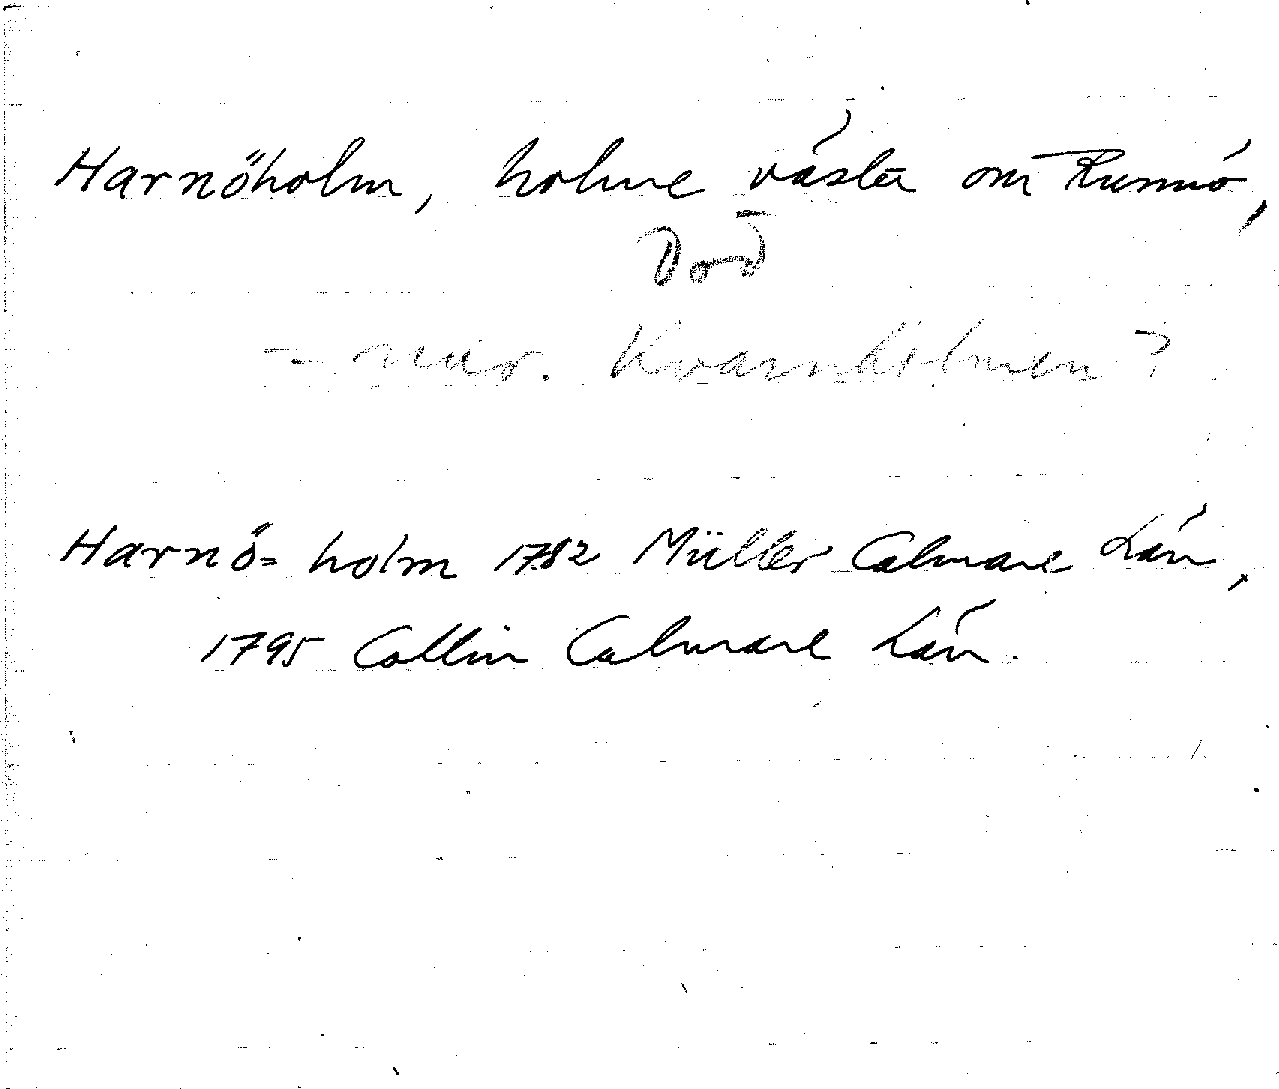 Harnöholm, holme väster om Runnö,
Död
- nuv. Kvarnholmen?
Harnö= holm 1782 Müller Calmare Län,
1795 Collin Calmare Län.